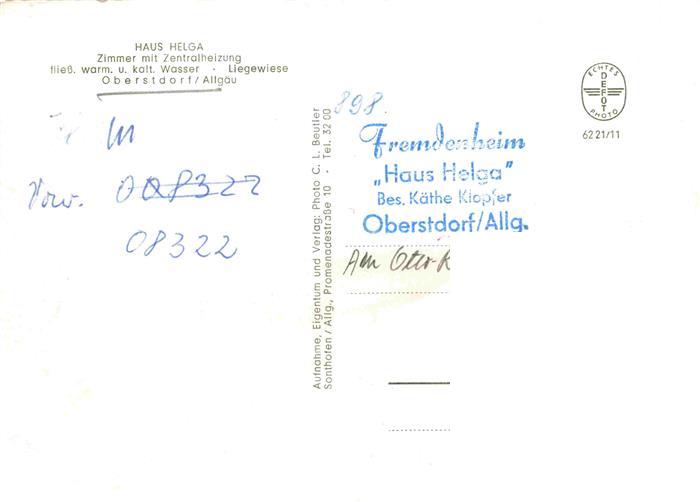 HAUS HELGA
Zimmer mit Zentralheizung
fließ. warm. u. kalt. Wasser · Liegewiese
Oberstdorf/Allgäu
Vorw. 008322
08322
Aufnahme, Eigentum und Verlag: Photo C. L. Beutler
Sonthofen/Allg., Promenadestraße 10 · Tel. 3200
898.
Fremdenheim
„Haus Helga"
Bes. Käthe Klopfer
Oberstdorf/Allg.
Am
ECHTES
DEFOT
PHOTO
6221/11